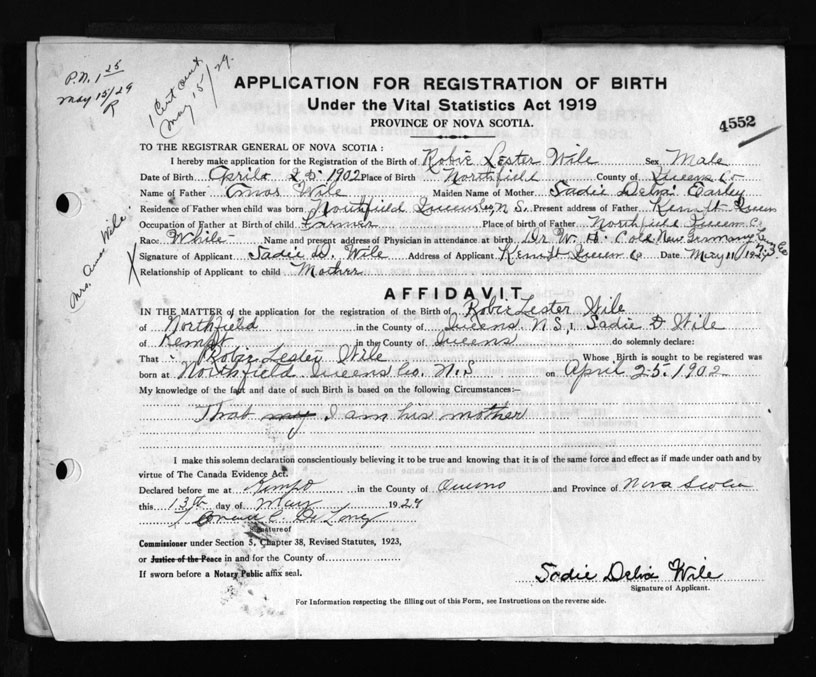 P.N. 1 25
May 15/29
R
1 Cert ount.
May 15/29.
APPLICATION FOR REGISTRATION OF BIRTH
Under the Vital Statistics Act 1919
PROVINCE OF NOVA SCOTIA.
4552
TO THE REGISTRAR GENERAL OF NOVA SCOTIA:
I hereby make application for the Registration of the Birth of Robie Lester Wile Sex Male
Date of Birth April 25. 1902 Place of Birth Northfield County of Queens Co
Name of Father Omar Wile Maiden Name of Mother Sadie Delia Earley
Residence of Father when child was born Northfield Queens Co N.S. Present address of Father Kempt Queens
Occupation of Father at Birth of child Farmer Place of birth of Father Northfield Queens Co
Race White Name and present address of Physician in attendance at birth Dr W. H. Cole New Germany Lun. Co N.S.
Signature of Applicant Sadie D. Wile Address of Applicant Kempt Queens Co Date May 11 1929
Relationship of Applicant to child Mother
Mrs. Wile
X
AFFIDAVIT
IN THE MATTER of the application for the registration of the Birth of Robie Lester Wile
of Northfield in the County of Queens N.S. I, Sadie D Wile
of Kempt in the County of Queens do solemnly declare:
That Robie Lester Wile Whose Birth is sought to be registered was
born at Northfield Queens Co. N.S on April 25. 1902
My knowledge of the fact and date of such Birth is based on the following Circumstances:—
That my I am his mother
I make this solemn declaration conscientiously believing it to be true and knowing that it is of the same force and effect as if made under oath and by
virtue of The Canada Evidence Act.
Declared before me at Kempt in the County of Queens and Province of Nova Scotia
this 13th day of May 1929
C. De Long
Signature of
Commissioner under Section 5, Chapter 38, Revised Statutes, 1923,
or Justice of the Peace in and for the County of
If sworn before a Notary Public affix seal.
Sadie Delia Wile
Signature of Applicant.
For Information respecting the filling out of this Form, see Instructions on the reverse side.